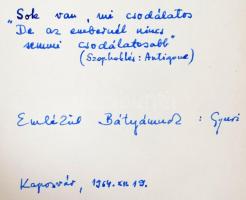 „Sok van, mi csodálatos
„De az embernél nincs
semmi csodálatosabb"
(Szophoklés: Antigone)
Emlékül Bátyámnak: Gyuri
Kaposvár, 1964. XII. 19.